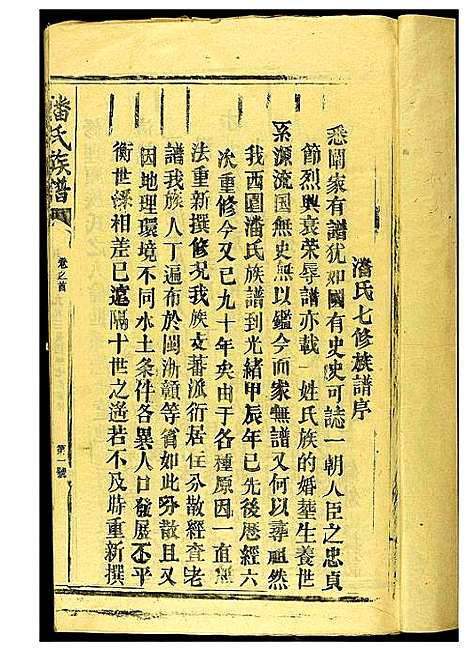 潘氏七修族譜序
悉聞家有譜犹如國有史史可誌一朝人臣之忠貞
節烈興衰荣辱譜亦載一姓氏族的婚塟生養世
系源流国無史無以鑑今而家無譜又何以尋祖然
我西園潘氏族譜到光緒甲辰年已先後歷經六
次重修今又已九十年矣由于各種原因一直無
法重新撰修况我族支蕃派衍居住分散經查老
譜我族人丁遍布於閩浙贛等省如此分散且又
因地理環境不同水土条件各異人口發展不平
衡世緣相差已遠隔十世之遙若不及時重新撰
潘氏族譜
卷之首
第一號